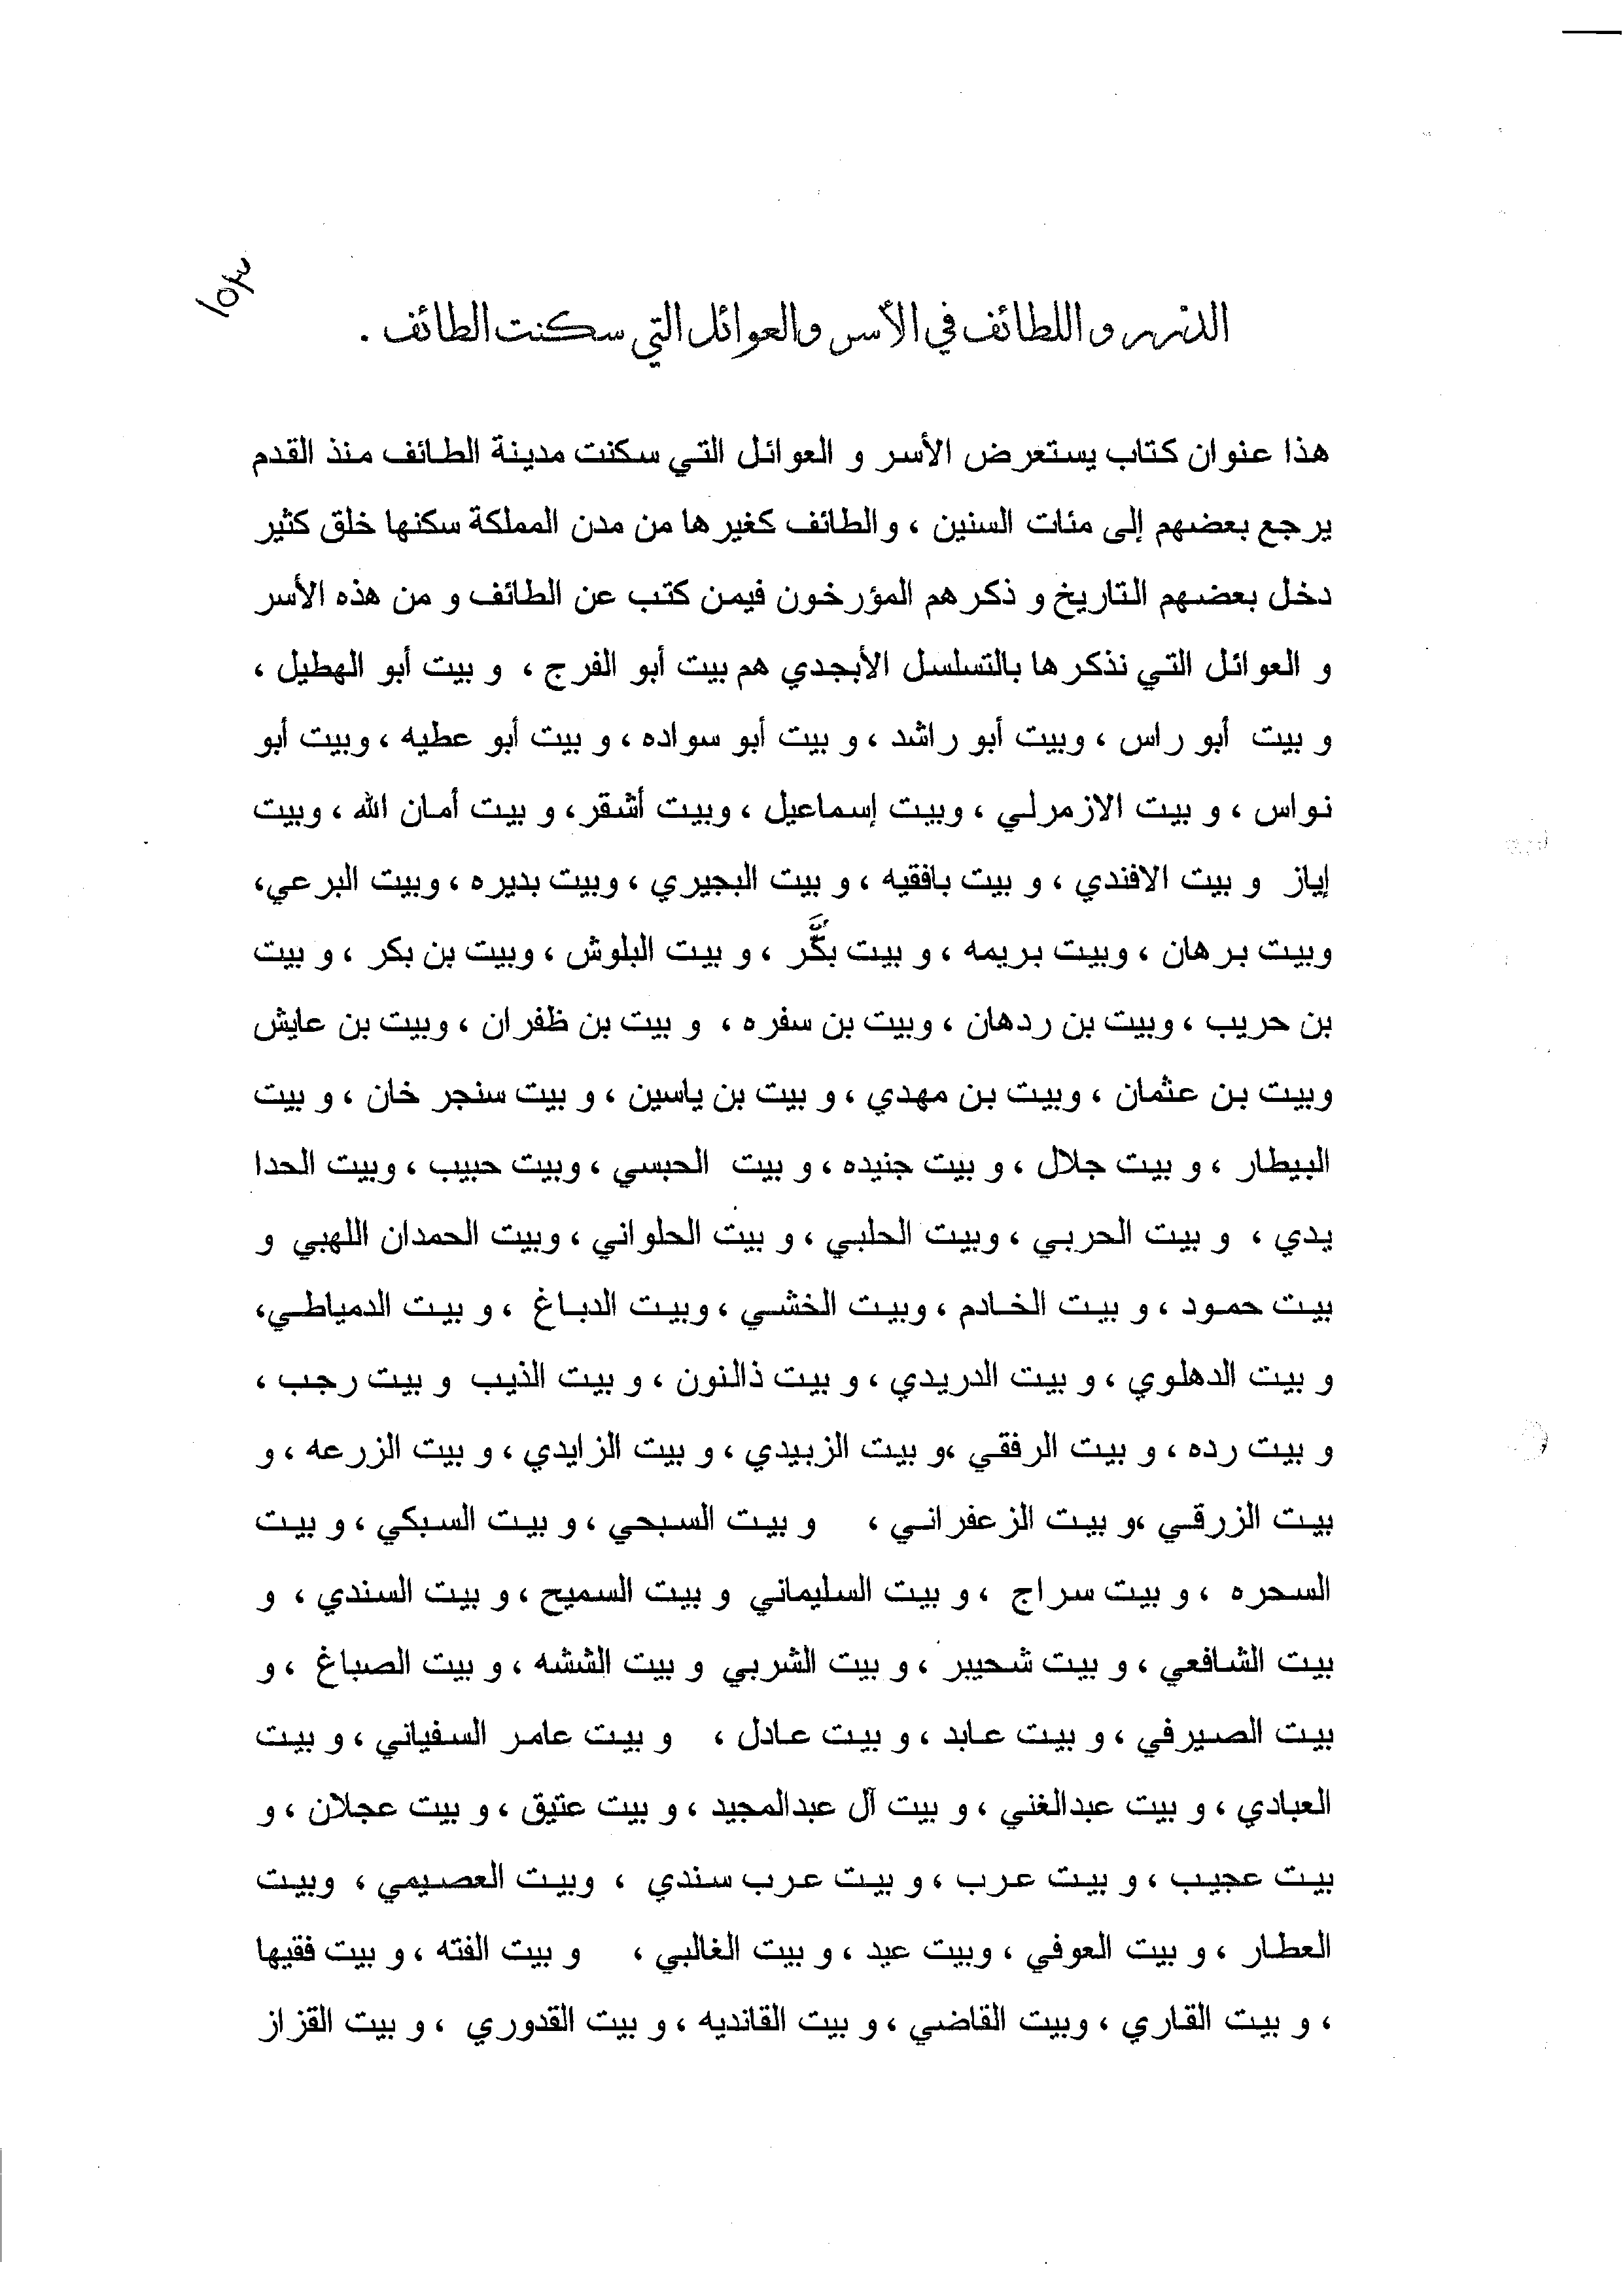 ١٥٣
الدرر و اللطائف في الأسر والعوائل التي سكنت الطائف .
هذا عنوان كتاب يستعرض الأسر و العوائل التي سكنت مدينة الطائف منذ القدم
يرجع بعضهم إلى مئات السنين ، والطائف كغيرها من مدن المملكة سكنها خلق كثير
دخل بعضهم التاريخ و ذكرهم المؤرخون فيمن كتب عن الطائف و من هذه الأسر
و العوائل التي نذكرها بالتسلسل الأبجدي هم بيت أبو الفرج ، و بيت أبو الهطيل ،
و بيت أبو راس ، وبيت أبو راشد ، و بيت أبو سواده ، و بيت أبو عطيه ، وبيت أبو
نواس ، و بيت الازمرلي ، وبيت إسماعيل ، وبيت أشقر، و بيت أمان الله ، وبيت
إياز و بيت الافندي ، و بيت بافقيه ، و بيت البجيري ، وبيت بديره ، وبيت البرعي،
وبيت برهان ، وبيت بريمه ، و بيت بكَّر ، و بيت البلوش ، وبيت بن بكر ، و بيت
بن حريب ، وبيت بن ردهان ، وبيت بن سفره ، و بيت بن ظفران ، وبيت بن عايش
وبيت بن عثمان ، وبيت بن مهدي ، و بيت بن ياسين ، و بيت سنجر خان ، و بيت
البيطار ، و بيت جلال ، و بيت جنيده ، و بيت الحبسي ، وبيت حبيب ، وبيت الحدا
يدي ، و بيت الحربي ، وبيت الحلبي ، و بيت الحلواني ، وبيت الحمدان اللهبي و
بيت حمود ، و بيت الخادم ، وبيت الخشي ، وبيت الدباغ ، و بيت الدمياطي،
و بيت الدهلوي ، و بيت الدريدي ، و بيت ذالنون ، و بيت الذيب و بيت رجب ،
و بيت رده ، و بيت الرفقي ،و بيت الزبيدي ، و بيت الزايدي ، و بيت الزرعه ، و
بيت الزرقي ،و بيت الزعفراني ، و بيت السبحي ، و بيت السبكي ، و بيت
السحره ، و بيت سراج ، و بيت السليماني و بيت السميح ، و بيت السندي ، و
بيت الشافعي ، و بيت شحيبر ، و بيت الشربي و بيت الششه ، و بيت الصباغ ، و
بيت الصيرفي ، و بيت عابد ، و بيت عادل ، و بيت عامر السفياني ، و بيت
العبادي ، و بيت عبدالغني ، و بيت آل عبدالمجيد ، و بيت عتيق ، و بيت عجلان ، و
بيت عجيب ، و بيت عرب ، و بيت عرب سندي ، وبيت العصيمي ، وبيت
العطار ، و بيت العوفي ، وبيت عيد ، و بيت الغالبي ، و بيت الفته ، و بيت فقيها
، و بيت القاري ، وبيت القاضي ، و بيت القانديه ، و بيت القدوري ، و بيت القزاز